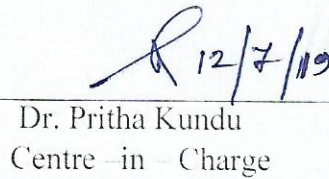 12/7/19
Dr. Pritha Kundu
Centre in Charge